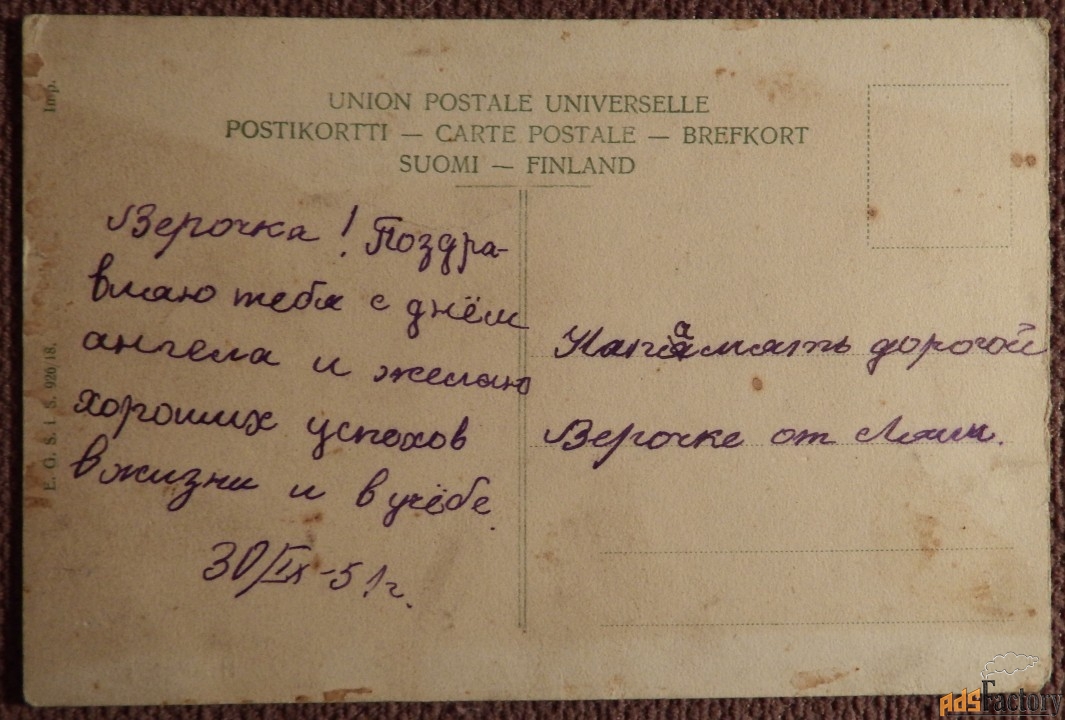 Imp.
UNION POSTALE UNIVERSELLE
POSTIKORTTI — CARTE POSTALE — BREFKORT
SUOMI — FINLAND
Верочка! Поздра-
вляю тебя с днём
ангела и желаю
хороших успехов
в жизни и в учёбе.
30/IX-51г.
дорогой
Верочке от Ляли.
E. O. S. i. S. 926 18.
adsFactory